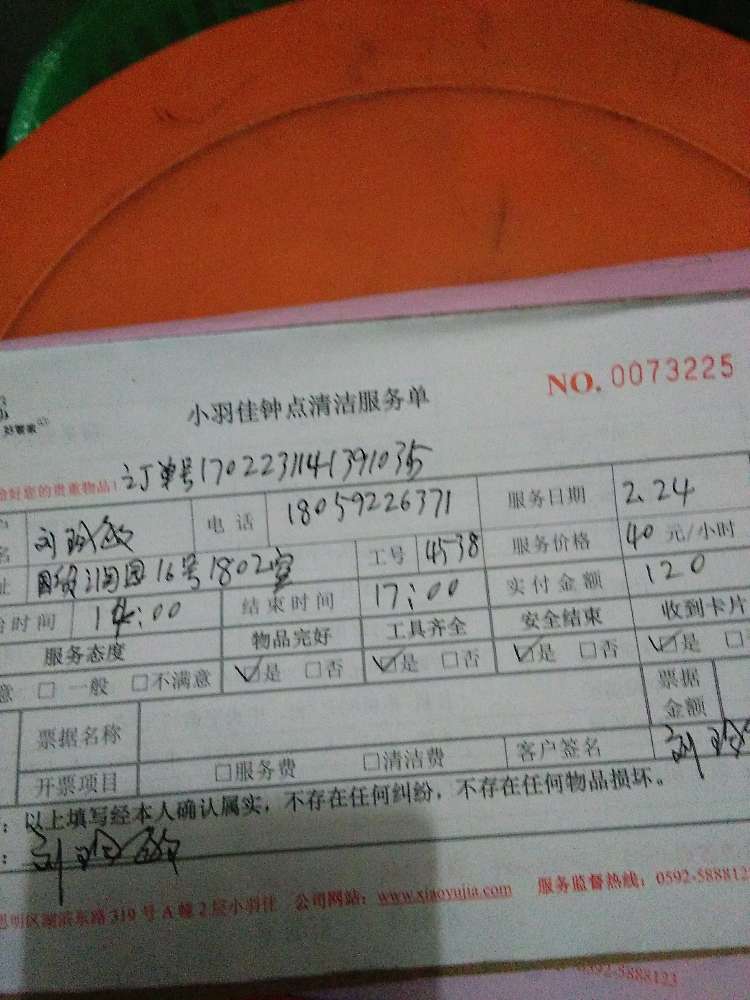 好管家
小羽佳钟点清洁服务单 NO. 0073225
好您的贵重物品! 订单号1702231141391035
名 刘 电话 18059226371 服务日期 2.24
址 园16号1802室 工号 4538 服务价格 40 元/小时
时间 14:00 结束时间 17:00 实付金额 120
服务态度 物品完好 工具齐全 安全结束 收到卡片
意 □ 一般 □不满意 ☑是 □否 ☑是 □否 ☑是 □否 ☑是 □
票据名称 票据金额
开票项目 □服务费 □清洁费 客户签名 刘
：以上填写经本人确认属实，不存在任何纠纷，不存在任何物品损坏。
：刘
思明区湖滨东路319号A幢2层小羽佳 公司网站：www.xiaoyujia.com 服务监督热线：0592-5888123
0592-5888123